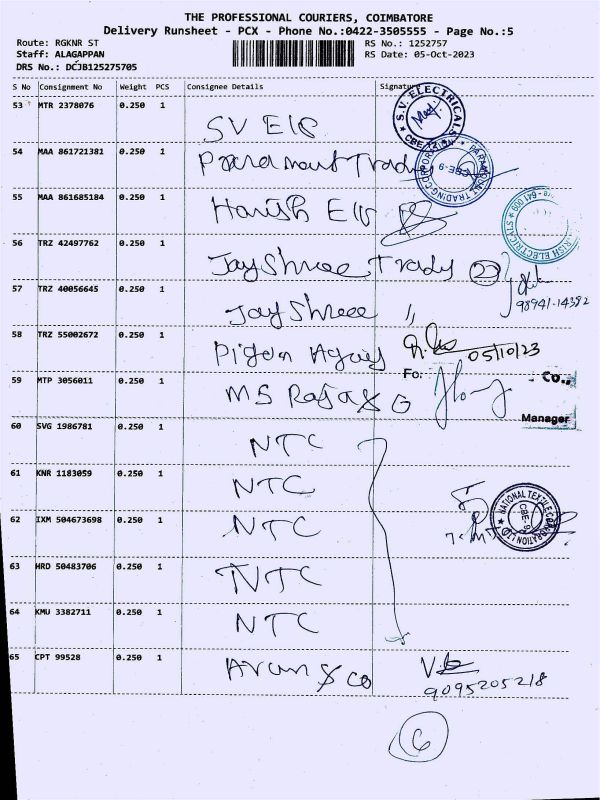 THE PROFESSIONAL COURIERS, COIMBATORE
Delivery Runsheet - PCX - Phone No.:0422-3505555 - Page No.:5
Route: RGKNR ST RS No.: 1252757
Staff: ALAGAPPAN RS Date: 05-Oct-2023
DRS No.: DCJB125275705
S No Consignment No Weight PCS Consignee Details Signature
53 MTR 2378076 0.250 1 SV Ele S.V. ELECTRICALS
54 MAA 861721381 0.250 1 Paramount Trady PARAMOUNT TRADING CORPORATION CBE-9
55 MAA 861685184 0.250 1 Harish Ele
56 TRZ 42497762 0.250 1 JayShree Trady 27
57 TRZ 40056645 0.250 1 JayShree 〃 98941-14382
58 TRZ 55002672 0.250 1 Pigeon Agency 05/10/23
59 MTP 3056011 0.250 1 MS Raja & Co For: Co.,
Manager
60 SVG 1986781 0.250 1 NTC
61 KNR 1183059 0.250 1 NTC
62 IXM 504673698 0.250 1 NTC NATIONAL TEXTILE CORPORATION LTD
63 HRD 50483706 0.250 1 NTC
64 KMU 3382711 0.250 1 NTC
65 CPT 99528 0.250 1 Arun & Co
9095205218
6